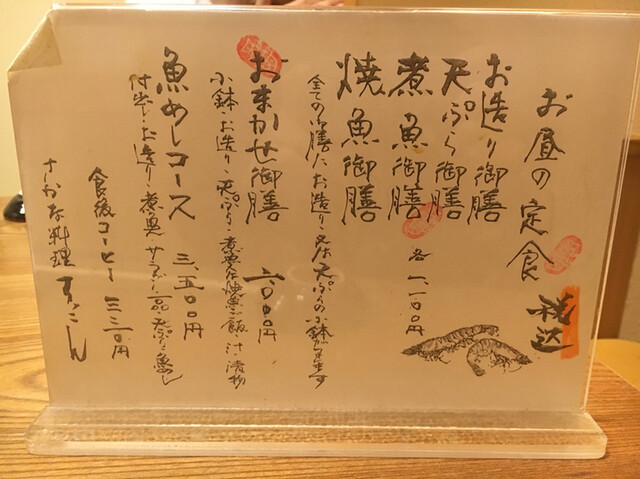 お昼の定食 税込
お造り御膳
天ぷら御膳
煮魚御膳 各一、一〇〇円
焼魚御膳
全ての御膳に、お造り、又は天ぷらの小鉢が
おまかせ御膳
小鉢・お造り・天ぷら・煮魚 ご飯 汁・漬物
魚めしコース 三、五〇〇円
付出し・お造り・煮魚 サラダ 一品 天ぷら 魚めし
食後コーヒー 三三〇円
さかな料理